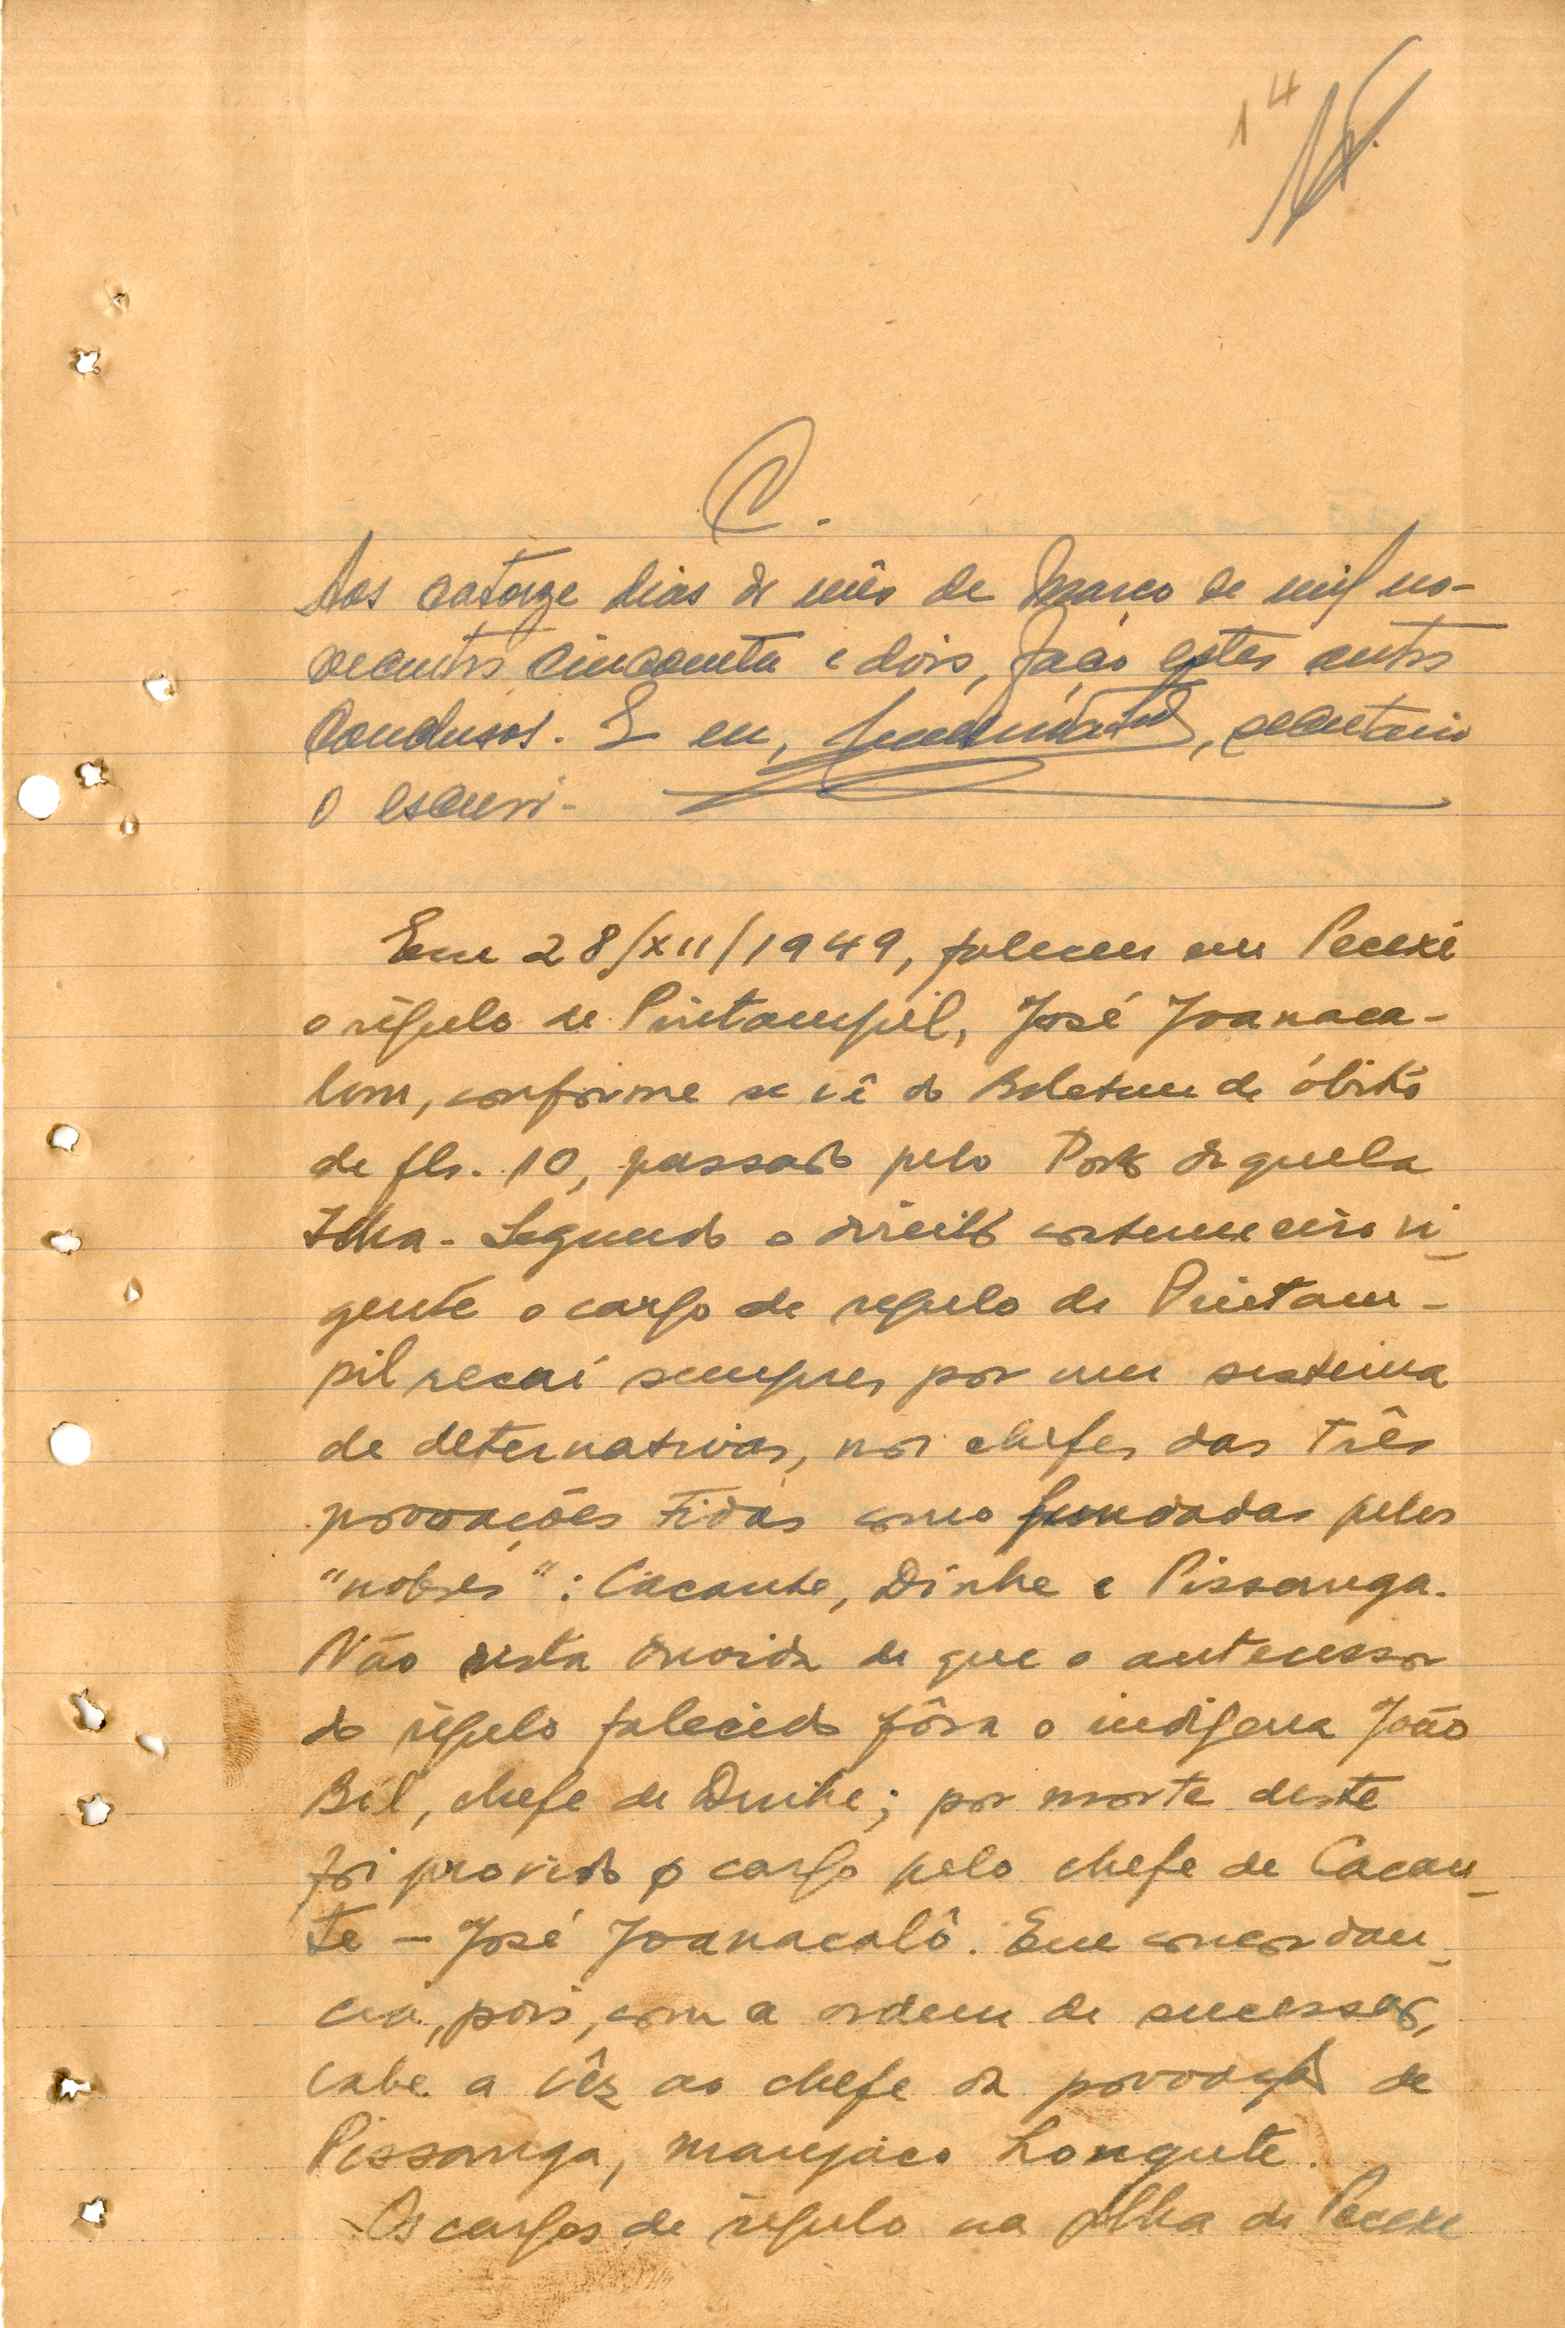 14
C.
Aos catorze dias do mês de Março de mil no-
vecentos cincoenta e dois, faço estes autos
conclusos. E eu, , secretario
o escrevi-
Em 28/XII/1949, faleceu em Pecexe
o régulo de Pintampil, José Joanaca-
lom, conforme se vê do Boletim de óbito
de fls. 10, passado pelo Posto daquela
Ilha. Segundo o direito costumeiro vi-
gente o cargo de regulo de Pintam-
pil recaí sempre, por um sistema
de alternativas, nos chefes das três
povoações tidas como fundadas pelos
"nobres": Cacante, Dinhe e Pissanga.
Não resta duvida de que o antecessor
do régulo falecido fôra o indigena João
Bil, chefe de Dinhe; por morte deste
foi provido o cargo pelo chefe de Cacan-
te - José Joanacalô. Em concordan-
cia, pois, com a ordem de sucessão,
cabe a vêz ao chefe da povoação de
Pissanga, manjaco Longute.
Os cargos de régulo na Ilha de Pecexe